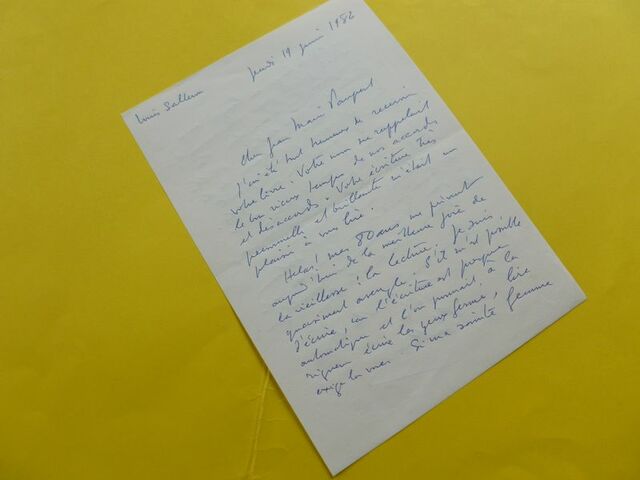 Louis Salleron
jeudi 19 juin 1986
Cher Jean Marie Paupert
J'ai été tout heureux de recevoir
votre livre. Votre nom me rappelait
le bon vieux temps de nos accords
et désaccords. Votre écriture très
personnelle et brillante m'était un
plaisir à vous lire.
Hélas! mes 80 ans me privent
aujourd'hui de la meilleure joie de
la vieillesse: la lecture. Je suis
quasiment aveugle. S'il m'est possible
d'écrire, car l'écriture est presque
automatique et l'on pourrait, à la
rigueur écrire les yeux fermés, lire
exige la vue. Si ma sainte femme